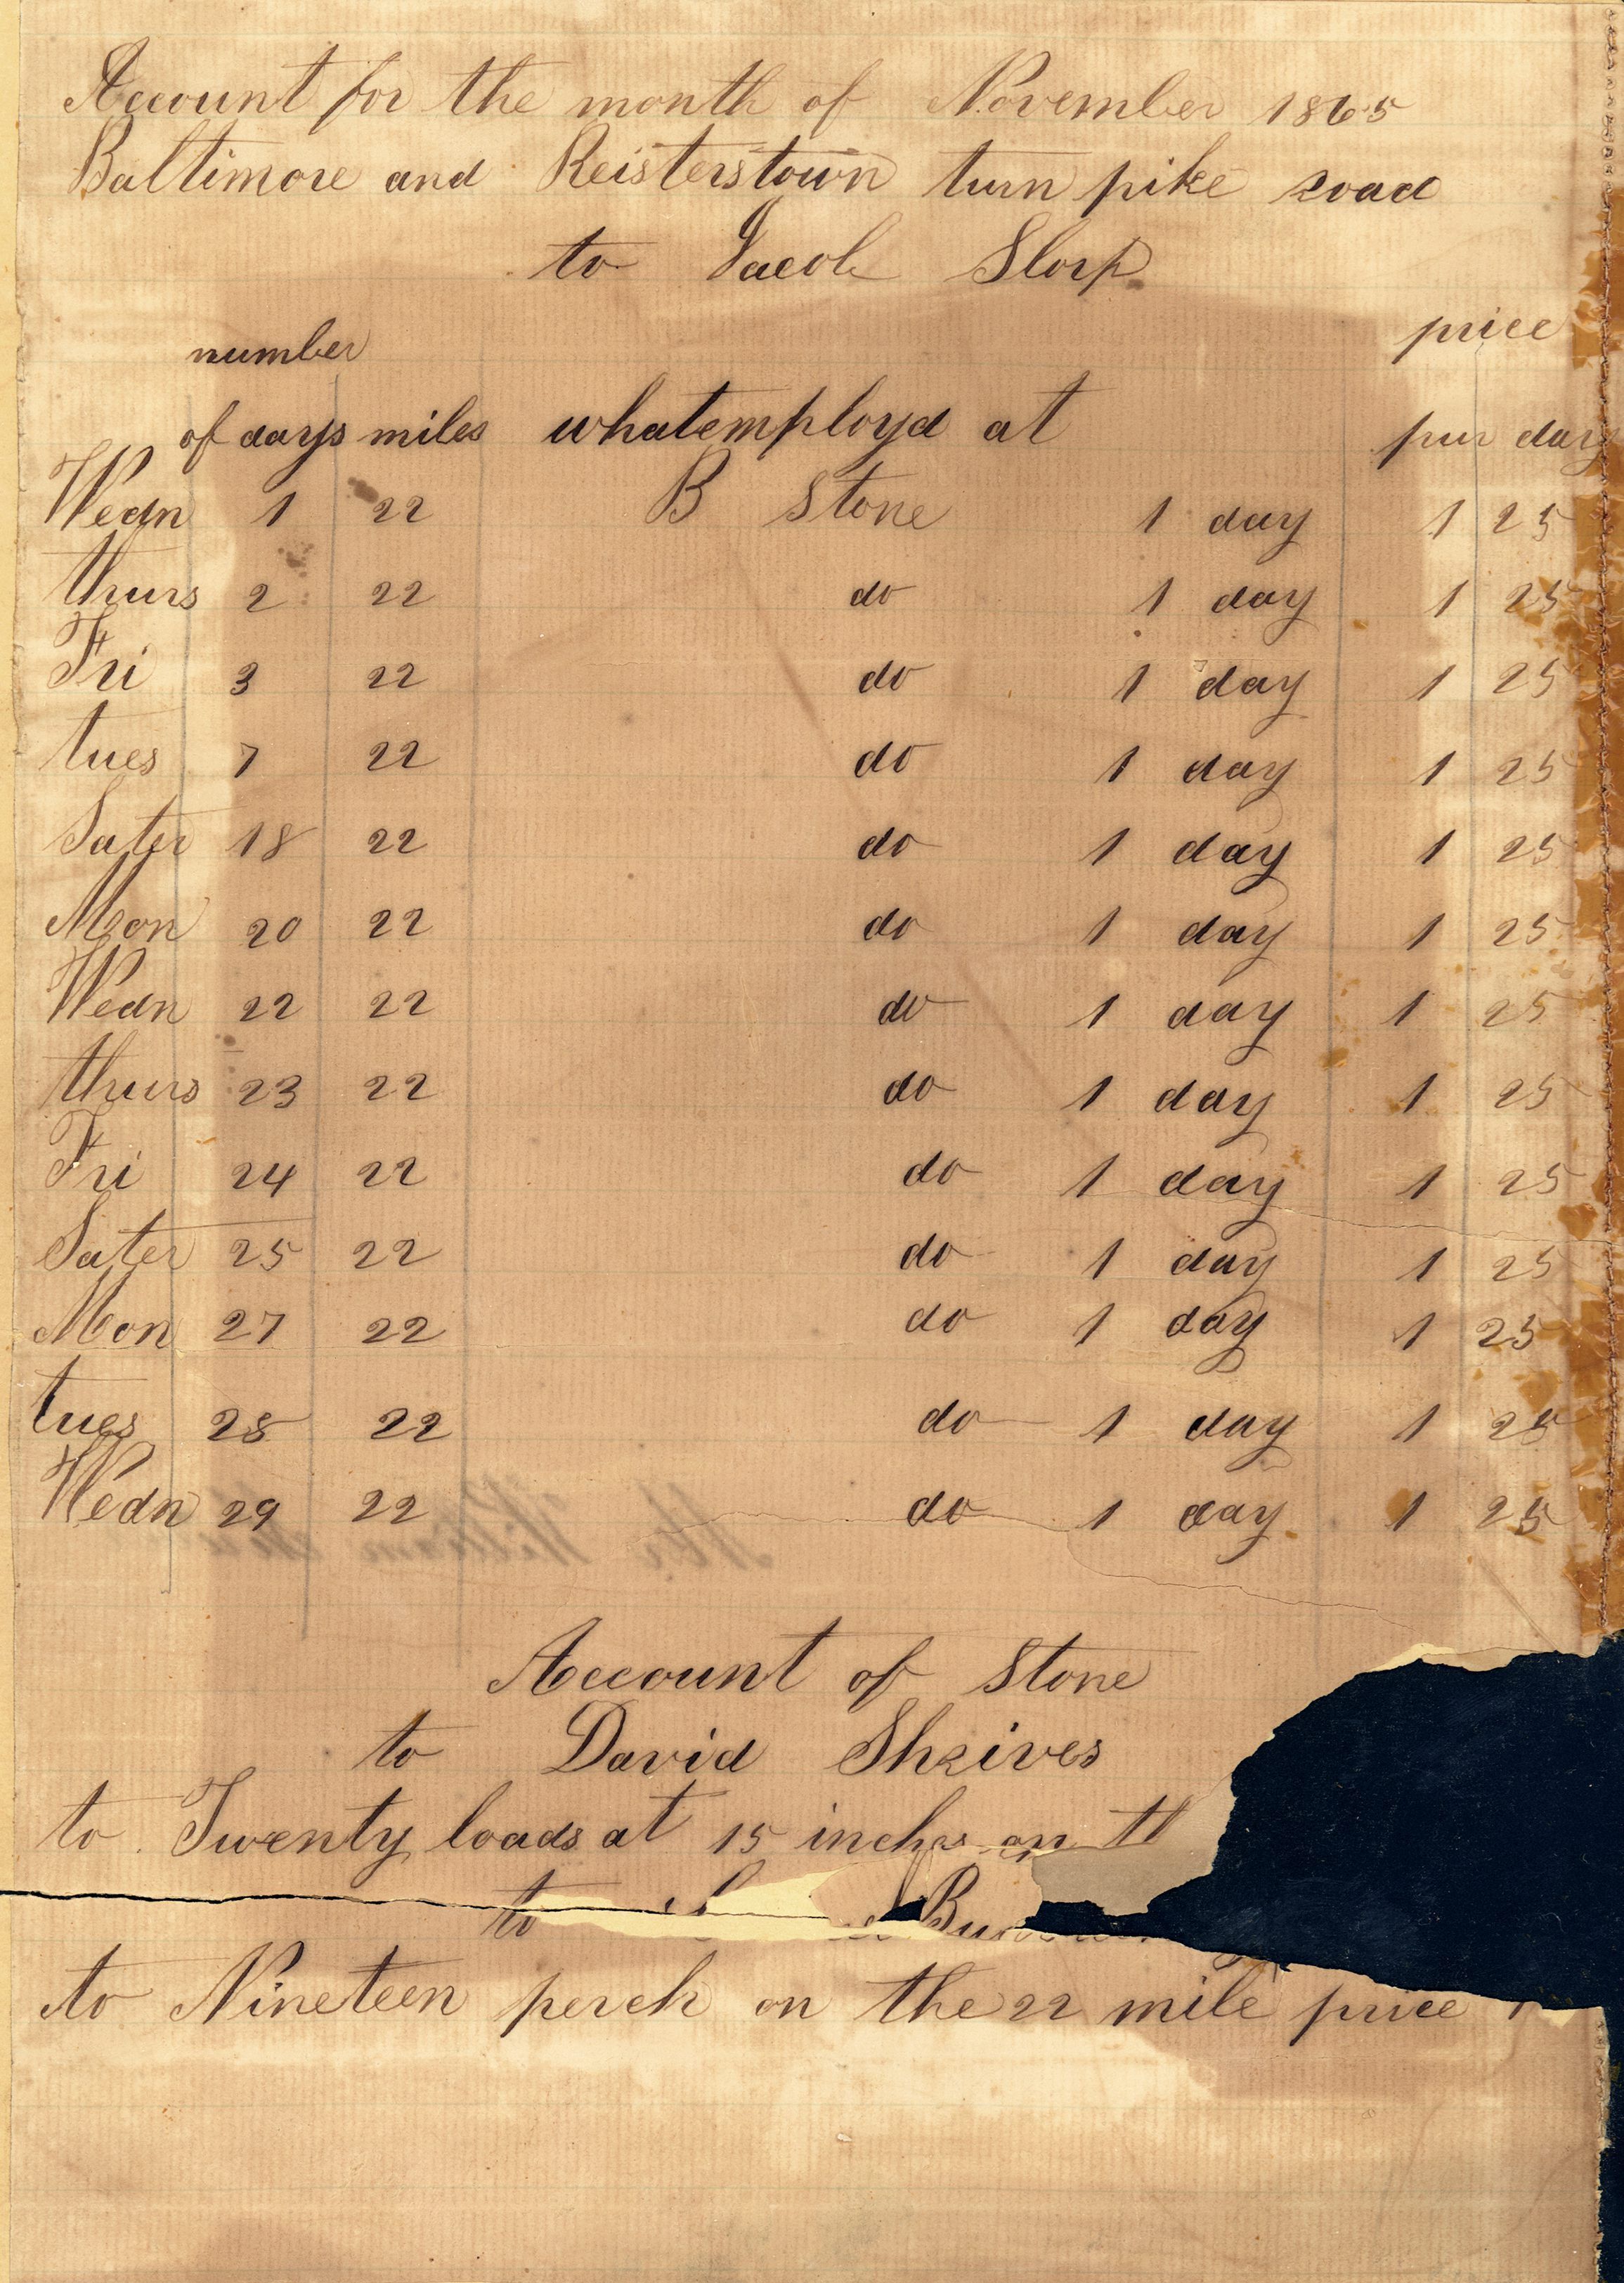 Account for the month of November 1865
Baltimore and Reisterstown turn pike road
to Jacob Slorp
number price
of days miles whatemployd at pur day
Wedn 1 22 B Stone 1 day 1 25
thurs 2 22 do 1 day 1 25
Fri 3 22 do 1 day 1 25
tues 7 22 do 1 day 1 25
Sater 18 22 do 1 day 1 25
Mon 20 22 do 1 day 1 25
Wedn 22 22 do 1 day 1 25
thurs 23 22 do 1 day 1 25
Fri 24 22 do 1 day 1 25
Sater 25 22 do 1 day 1 25
Mon 27 22 do 1 day 1 25
tues 28 22 do 1 day 1 25
Wedn 29 22 do 1 day 1 25
Account of Stone
to David Shrives
to Twenty loads at 15 inches on
to
to Nineteen perch on the 22 mile price